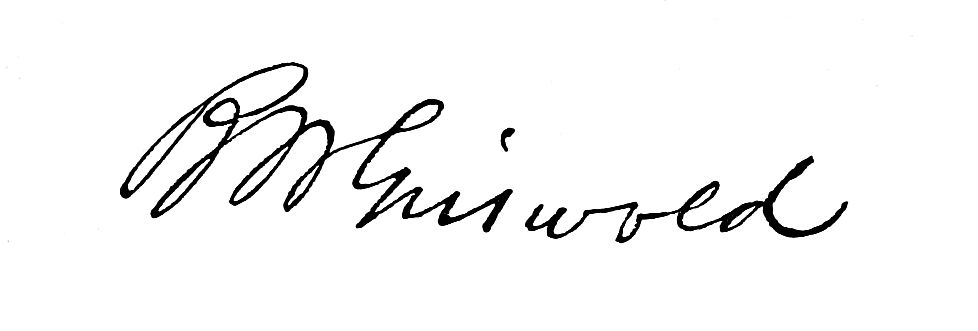 B M Griswold